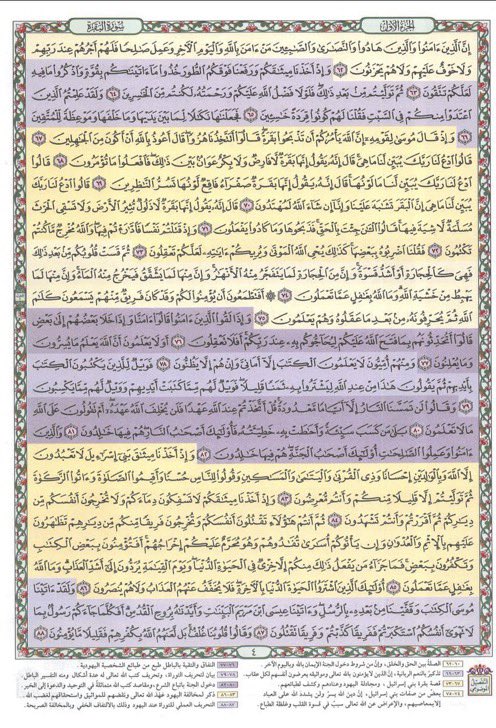 الجزء الأول
سورة البقرة
إن الذين ءامنوا والذين هادوا والنصرى والصبين من ءامن بالله واليوم الآخر وعمل صلحا فلهم أجرهم عند ربهم
ولا خوف عليهم ولا هم يحزنون ٦٢ وإذ أخذنا ميثقكم ورفعنا فوقكم الطور خذوا ما ءاتينكم بقوة واذكروا ما فيه
لعلكم تتقون ٦٣ ثم توليتم من بعد ذلك فلولا فضل الله عليكم ورحمته لكنتم من الخسرين ٦٤ ولقد علمتم الذين
اعتدوا منكم في السبت فقلنا لهم كونوا قردة خسين ٦٥ فجعلنها نكلا لما بين يديها وما خلفها وموعظة للمتقين
٦٦ وإذ قال موسى لقومه إن الله يأمركم أن تذبحوا بقرة قالوا أتتخذنا هزوا قال أعوذ بالله أن أكون من الجهلين ٦٧
قالوا ادع لنا ربك يبين لنا ما هي قال إنه يقول إنها بقرة لا فارض ولا بكر عوان بين ذلك فافعلوا ما تؤمرون ٦٨ قالوا
ادع لنا ربك يبين لنا ما لونها قال إنه يقول إنها بقرة صفراء فاقع لونها تسر النظرين ٦٩ قالوا ادع لنا ربك
يبين لنا ما هي إن البقر تشبه علينا وإنا إن شاء الله لمهتدون ٧٠ قال إنه يقول إنها بقرة لا ذلول تثير الأرض ولا تسقي الحرث
مسلمة لا شية فيها قالوا الن جئت بالحق فذبحوها وما كادوا يفعلون ٧١ وإذ قتلتم نفسا فادرءتم فيها والله مخرج ما كنتم
تكتمون ٧٢ فقلنا اضربوه ببعضها كذلك يحي الله الموتى ويريكم ءايته لعلكم تعقلون ٧٣ ثم قست قلوبكم من بعد ذلك
فهي كالحجارة أو أشد قسوة وإن من الحجارة لما يتفجر منه الأنهر وإن منها لما يشقق فيخرج منه الماء وإن منها لما
يهبط من خشية الله وما الله بغفل عما تعملون ٧٤ ۞ أفتطمعون أن يؤمنوا لكم وقد كان فريق منهم يسمعون كلم
الله ثم يحرفونه من بعد ما عقلوه وهم يعلمون ٧٥ وإذا لقوا الذين ءامنوا قالوا ءامنا وإذا خلا بعضهم إلى بعض
قالوا أتحدثونهم بما فتح الله عليكم ليحاجوكم به عند ربكم أفلا تعقلون ٧٦ أولا يعلمون أن الله يعلم ما يسرون
وما يعلنون ٧٧ ومنهم أميون لا يعلمون الكتب إلا أماني وإن هم إلا يظنون ٧٨ فويل للذين يكتبون الكتب
بأيديهم ثم يقولون هذا من عند الله ليشتروا به ثمنا قليلا فويل لهم مما كتبت أيديهم وويل لهم مما يكسبون
٧٩ وقالوا لن تمسنا النار إلا أياما معدودة قل أتخذتم عند الله عهدا فلن يخلف الله عهده أم تقولون على الله
ما لا تعلمون ٨٠ بلى من كسب سيئة وأحطت به خطيئته فأولئك أصحب النار هم فيها خلدون ٨١ والذين
ءامنوا وعملوا الصلحت أولئك أصحب الجنة هم فيها خلدون ٨٢ وإذ أخذنا ميثق بني إسرءيل لا تعبدون
إلا الله وبالولدين إحسانا وذي القربى واليتمى والمسكين وقولوا للناس حسنا وأقيموا الصلوة وءاتوا الزكوة
ثم توليتم إلا قليلا منكم وأنتم معرضون ٨٣ وإذ أخذنا ميثقكم لا تسفكون دماءكم ولا تخرجون أنفسكم من
ديركم ثم أقررتم وأنتم تشهدون ٨٤ ثم أنتم هؤلاء تقتلون أنفسكم وتخرجون فريقا منكم من ديرهم تظهرون
عليهم بالإثم والعدون وإن يأتوكم أسرى تفدوهم وهو محرم عليكم إخراجهم أفتؤمنون ببعض الكتب
وتكفرون ببعض فما جزاء من يفعل ذلك منكم إلا خزي في الحيوة الدنيا ويوم القيمة يردون إلى أشد العذاب وما الله
بغفل عما تعملون ٨٥ أولئك الذين اشتروا الحيوة الدنيا بالآخرة فلا يخفف عنهم العذاب ولا هم ينصرون ٨٦ ولقد ءاتينا
موسى الكتب وقفينا من بعده بالرسل وءاتينا عيسى ابن مريم البينت وأيدنه بروح القدس أفكلما جاءكم رسول بما
لا تهوى أنفسكم استكبرتم ففريقا كذبتم وفريقا تقتلون ٨٧ وقالوا قلوبنا غلف بل لعنهم الله بكفرهم فقليلا ما يؤمنون ٨٨
٤
الصلة بين الحق والخلق، وإن من شروط دخول الجنة الإيمان بالله وباليوم الآخر.
قصة بقرة بني إسرائيل،
النفاق والتقية بالباطل طبع من طبائع الشخصية اليهودية.
بيان تحريف التوراة، وتحريف كتب الله تعالى له عدة أشكال